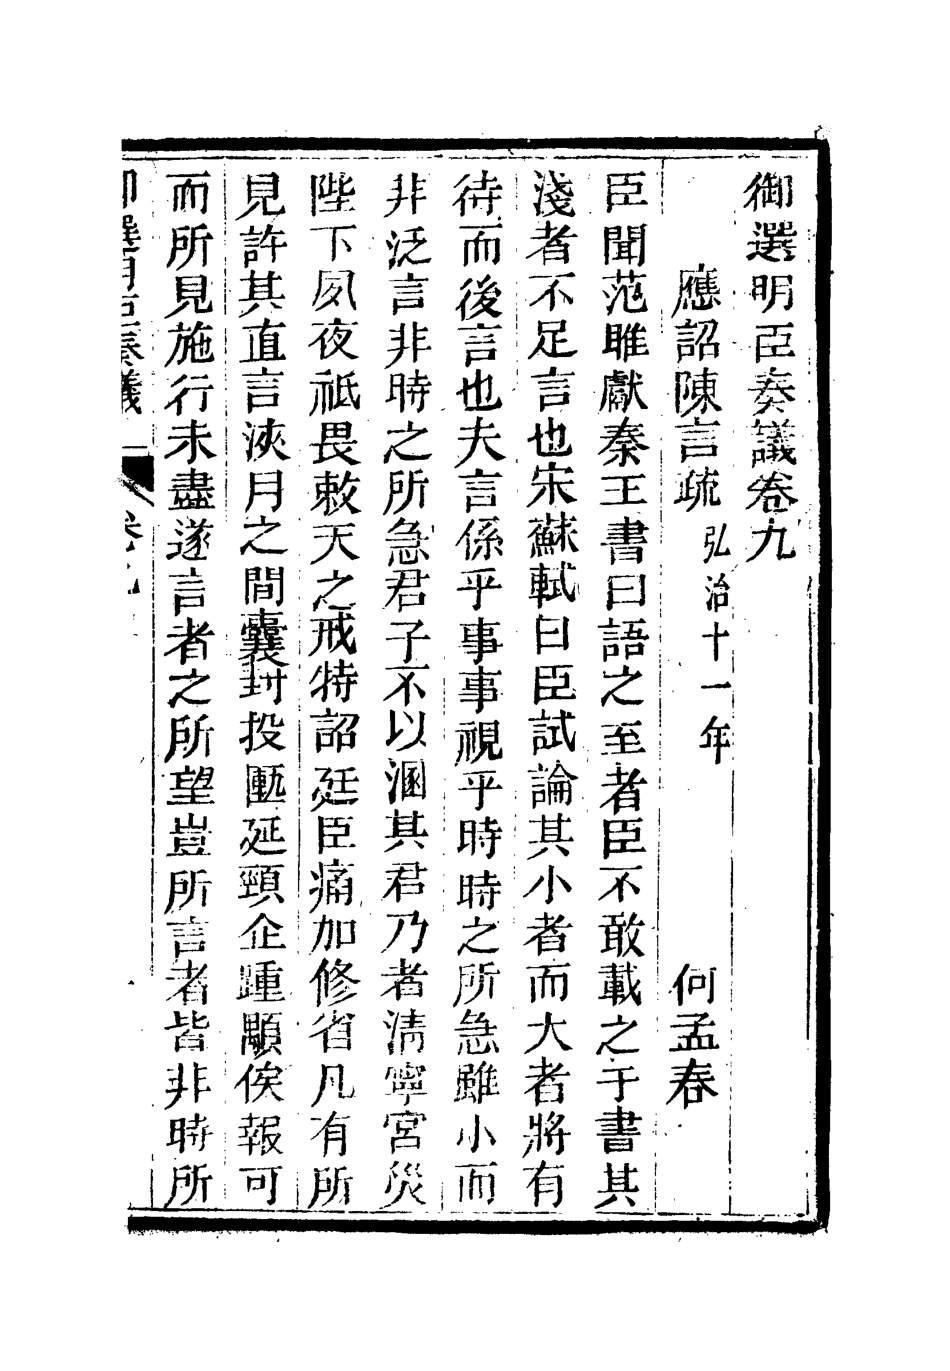 御選明臣奏議卷九
應詔陳言疏弘治十一年 何孟春
臣聞范雎獻秦王書曰語之至者臣不敢載之于書其
淺者不足言也宋蘇軾曰臣試論其小者而大者將有
待而後言也夫言係乎事事視乎時時之所急雖小而
非泛言非時之所急君子不以溷其君乃者清寧宮災
陛下夙夜祇畏敕天之戒特詔廷臣痛加修省凡有所
見許其直言浹月之間囊封投匭延頸企踵顒俟報可
而所見施行未盡遂言者之所望豈所言者皆非時所
御選明臣奏議 卷九 一